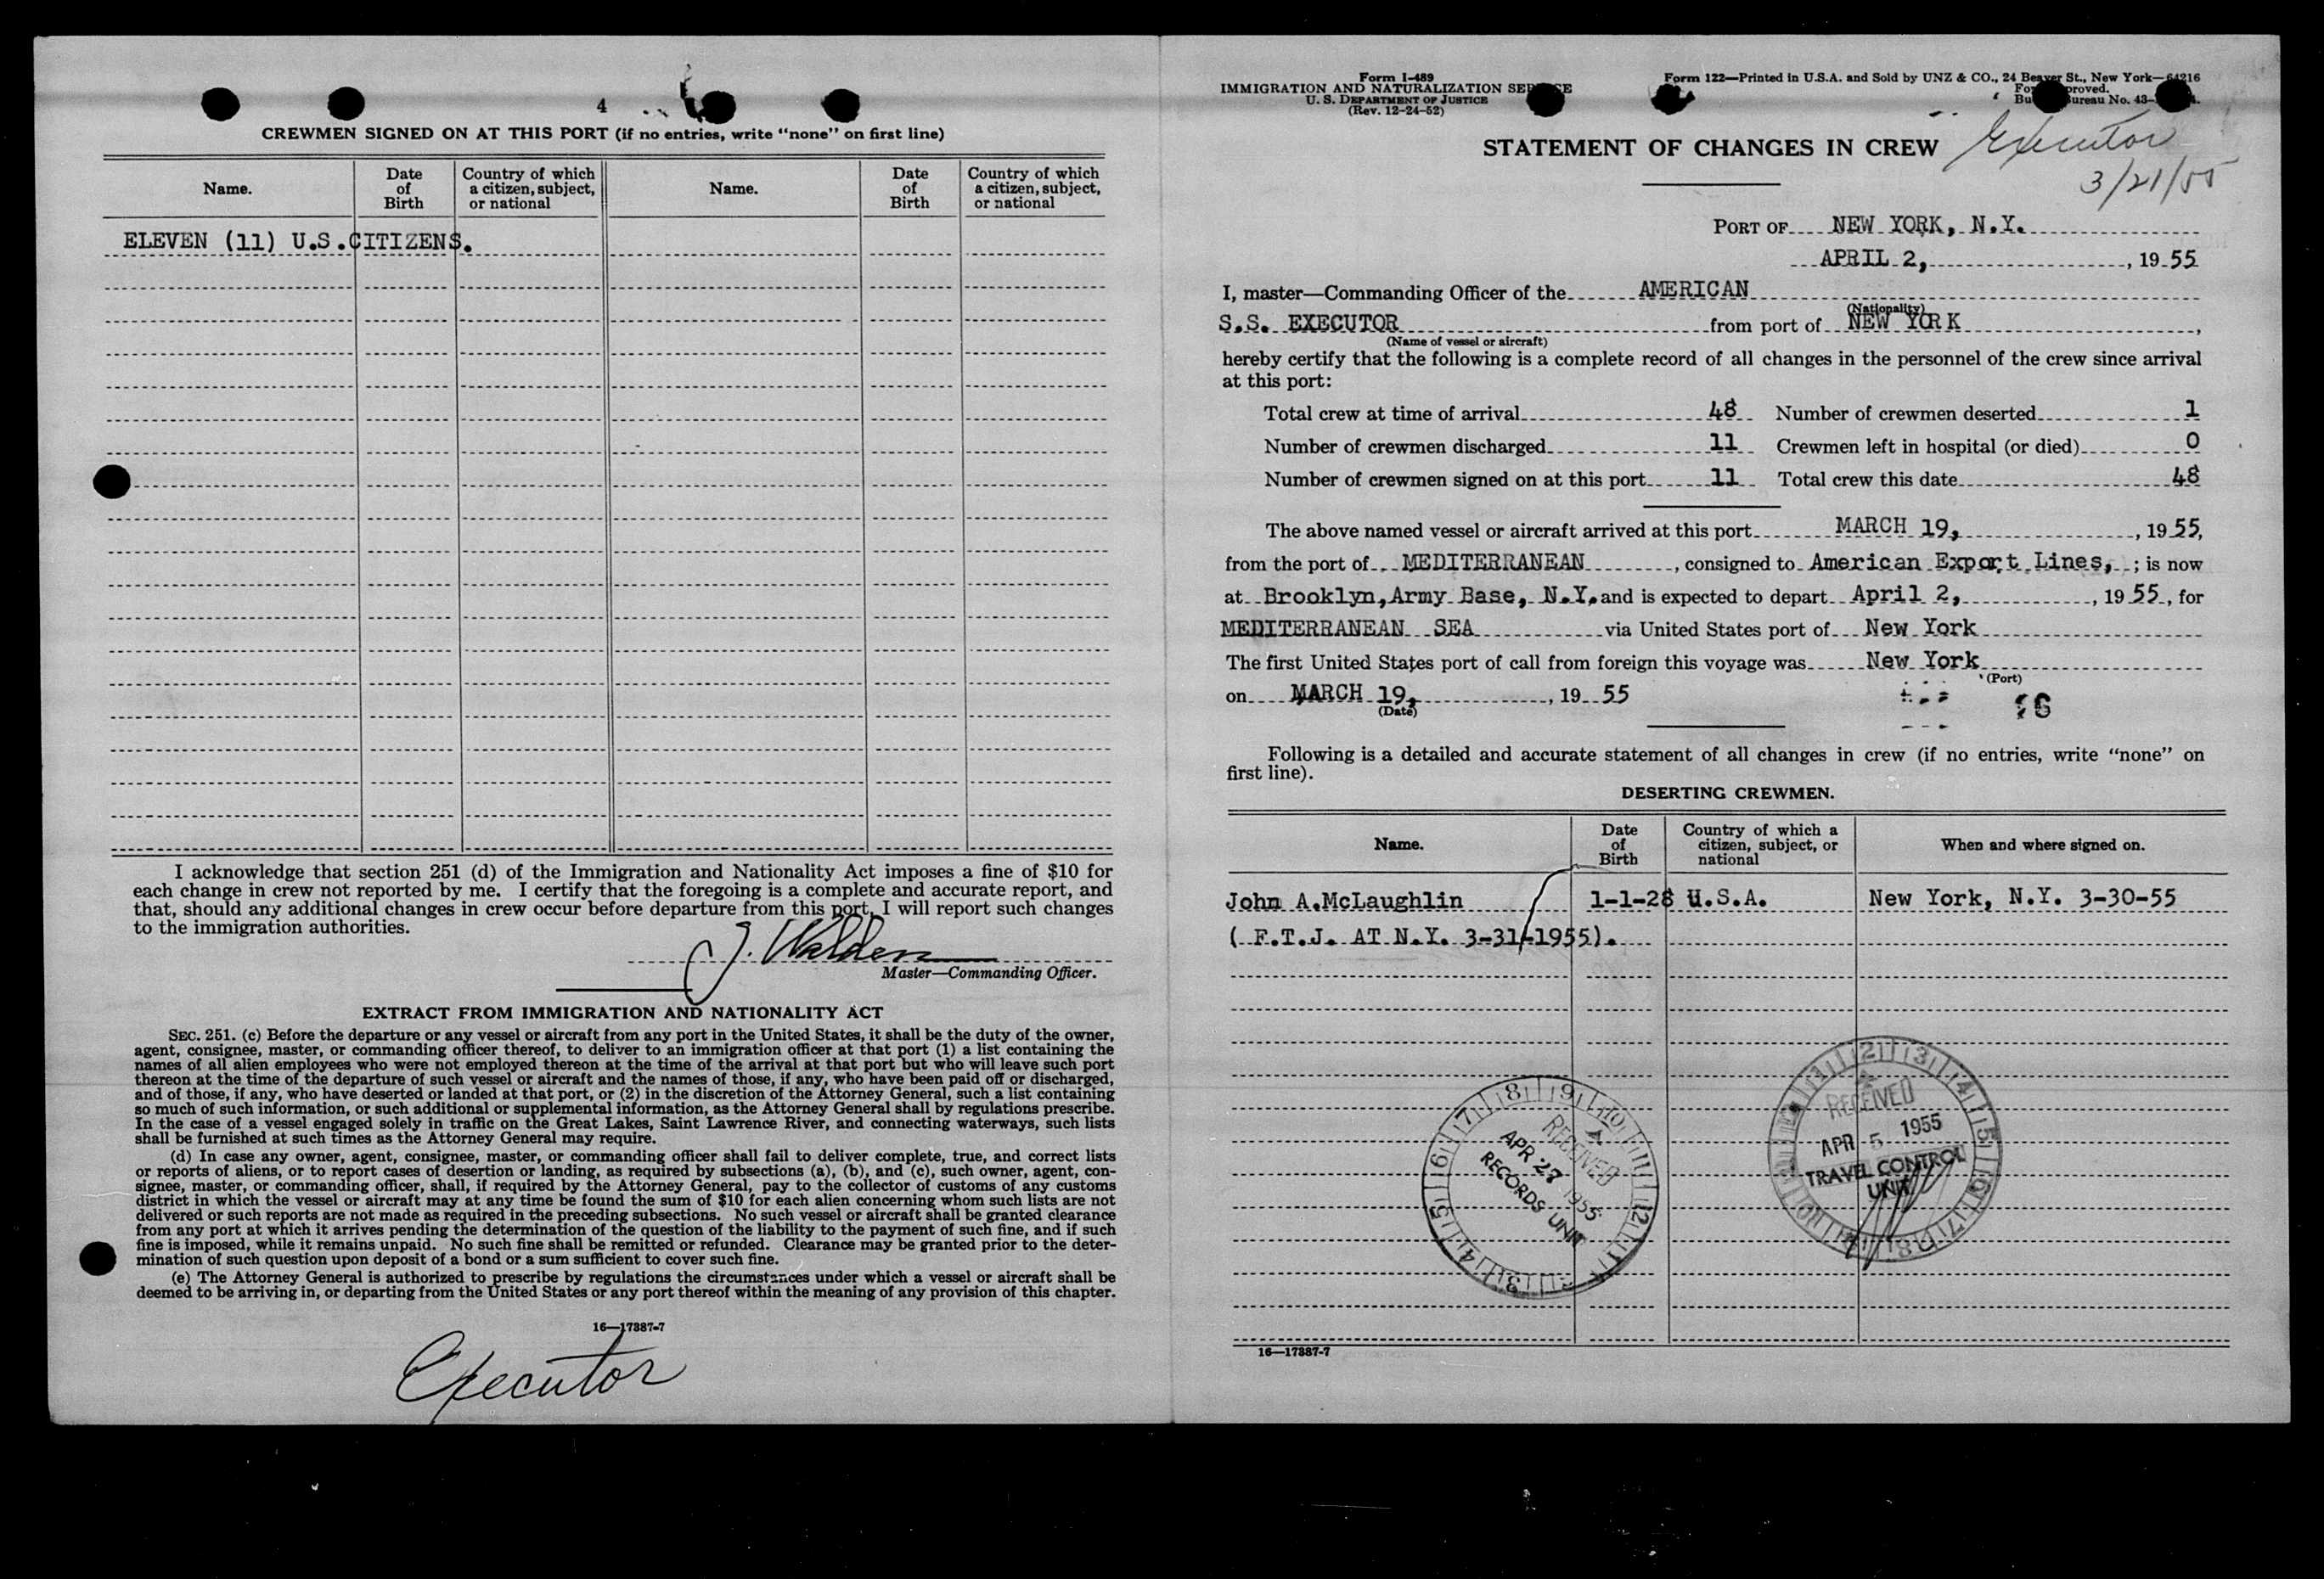 4
CREWMEN SIGNED ON AT THIS PORT (if no entries, write “none” on first line)
Name. Date of Birth Country of which a citizen, subject, or national Name. Date of Birth Country of which a citizen, subject, or national
ELEVEN (11) U.S.CITIZENS.
I acknowledge that section 251 (d) of the Immigration and Nationality Act imposes a fine of $10 for
each change in crew not reported by me. I certify that the foregoing is a complete and accurate report, and
that, should any additional changes in crew occur before departure from this port, I will report such changes
to the immigration authorities.
J. Walden
Master—Commanding Officer.
EXTRACT FROM IMMIGRATION AND NATIONALITY ACT
SEC. 251. (c) Before the departure or any vessel or aircraft from any port in the United States, it shall be the duty of the owner,
agent, consignee, master, or commanding officer thereof, to deliver to an immigration officer at that port (1) a list containing the
names of all alien employees who were not employed thereon at the time of the arrival at that port but who will leave such port
thereon at the time of the departure of such vessel or aircraft and the names of those, if any, who have been paid off or discharged,
and of those, if any, who have deserted or landed at that port, or (2) in the discretion of the Attorney General, such a list containing
so much of such information, or such additional or supplemental information, as the Attorney General shall by regulations prescribe.
In the case of a vessel engaged solely in traffic on the Great Lakes, Saint Lawrence River, and connecting waterways, such lists
shall be furnished at such times as the Attorney General may require.
(d) In case any owner, agent, consignee, master, or commanding officer shall fail to deliver complete, true, and correct lists
or reports of aliens, or to report cases of desertion or landing, as required by subsections (a), (b), and (c), such owner, agent, con-
signee, master, or commanding officer, shall, if required by the Attorney General, pay to the collector of customs of any customs
district in which the vessel or aircraft may at any time be found the sum of $10 for each alien concerning whom such lists are not
delivered or such reports are not made as required in the preceding subsections. No such vessel or aircraft shall be granted clearance
from any port at which it arrives pending the determination of the question of the liability to the payment of such fine, and if such
fine is imposed, while it remains unpaid. No such fine shall be remitted or refunded. Clearance may be granted prior to the deter-
mination of such question upon deposit of a bond or a sum sufficient to cover such fine.
(e) The Attorney General is authorized to prescribe by regulations the circumstances under which a vessel or aircraft shall be
deemed to be arriving in, or departing from the United States or any port thereof within the meaning of any provision of this chapter.
16—17387-7
Executor
Form I-489
IMMIGRATION AND NATURALIZATION SERVICE
U. S. DEPARTMENT OF JUSTICE
(Rev. 12-24-52)
Form 122—Printed in U.S.A. and Sold by UNZ & CO., 24 Beaver St., New York—64216
Bureau No. 43-
STATEMENT OF CHANGES IN CREW
Executor
3/21/55
PORT OF NEW YORK, N.Y.
APRIL 2, , 19 55
I, master—Commanding Officer of the AMERICAN
(Nationality)
S.S. EXECUTOR from port of NEW YORK ,
(Name of vessel or aircraft)
hereby certify that the following is a complete record of all changes in the personnel of the crew since arrival
at this port:
Total crew at time of arrival 48 Number of crewmen deserted 1
Number of crewmen discharged 11 Crewmen left in hospital (or died) 0
Number of crewmen signed on at this port 11 Total crew this date 48
The above named vessel or aircraft arrived at this port MARCH 19, , 19 55,
from the port of MEDITERRANEAN , consigned to American Export Lines, ; is now
at Brooklyn,Army Base, N.Y. and is expected to depart April 2, , 19 55 , for
MEDITERRANEAN SEA via United States port of New York
The first United States port of call from foreign this voyage was New York
(Port)
on MARCH 19, , 19 55
(Date)
16
Following is a detailed and accurate statement of all changes in crew (if no entries, write “none” on
first line).
DESERTING CREWMEN.
Name. Date of Birth Country of which a citizen, subject, or national When and where signed on.
John A.McLaughlin 1-1-28 U.S.A. New York, N.Y. 3-30-55
( F.T.J. AT N.Y. 3-31-1955).
RECEIVED
APR 27 1955
RECORDS UNIT
RECEIVED
APR 5 1955
TRAVEL CONTROL
UNIT
16—17387-7